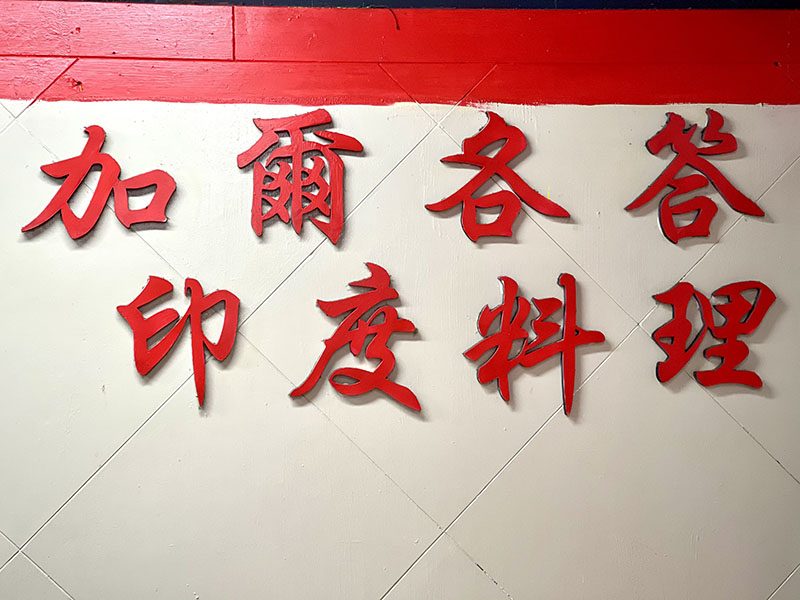 加爾各答
印度料理